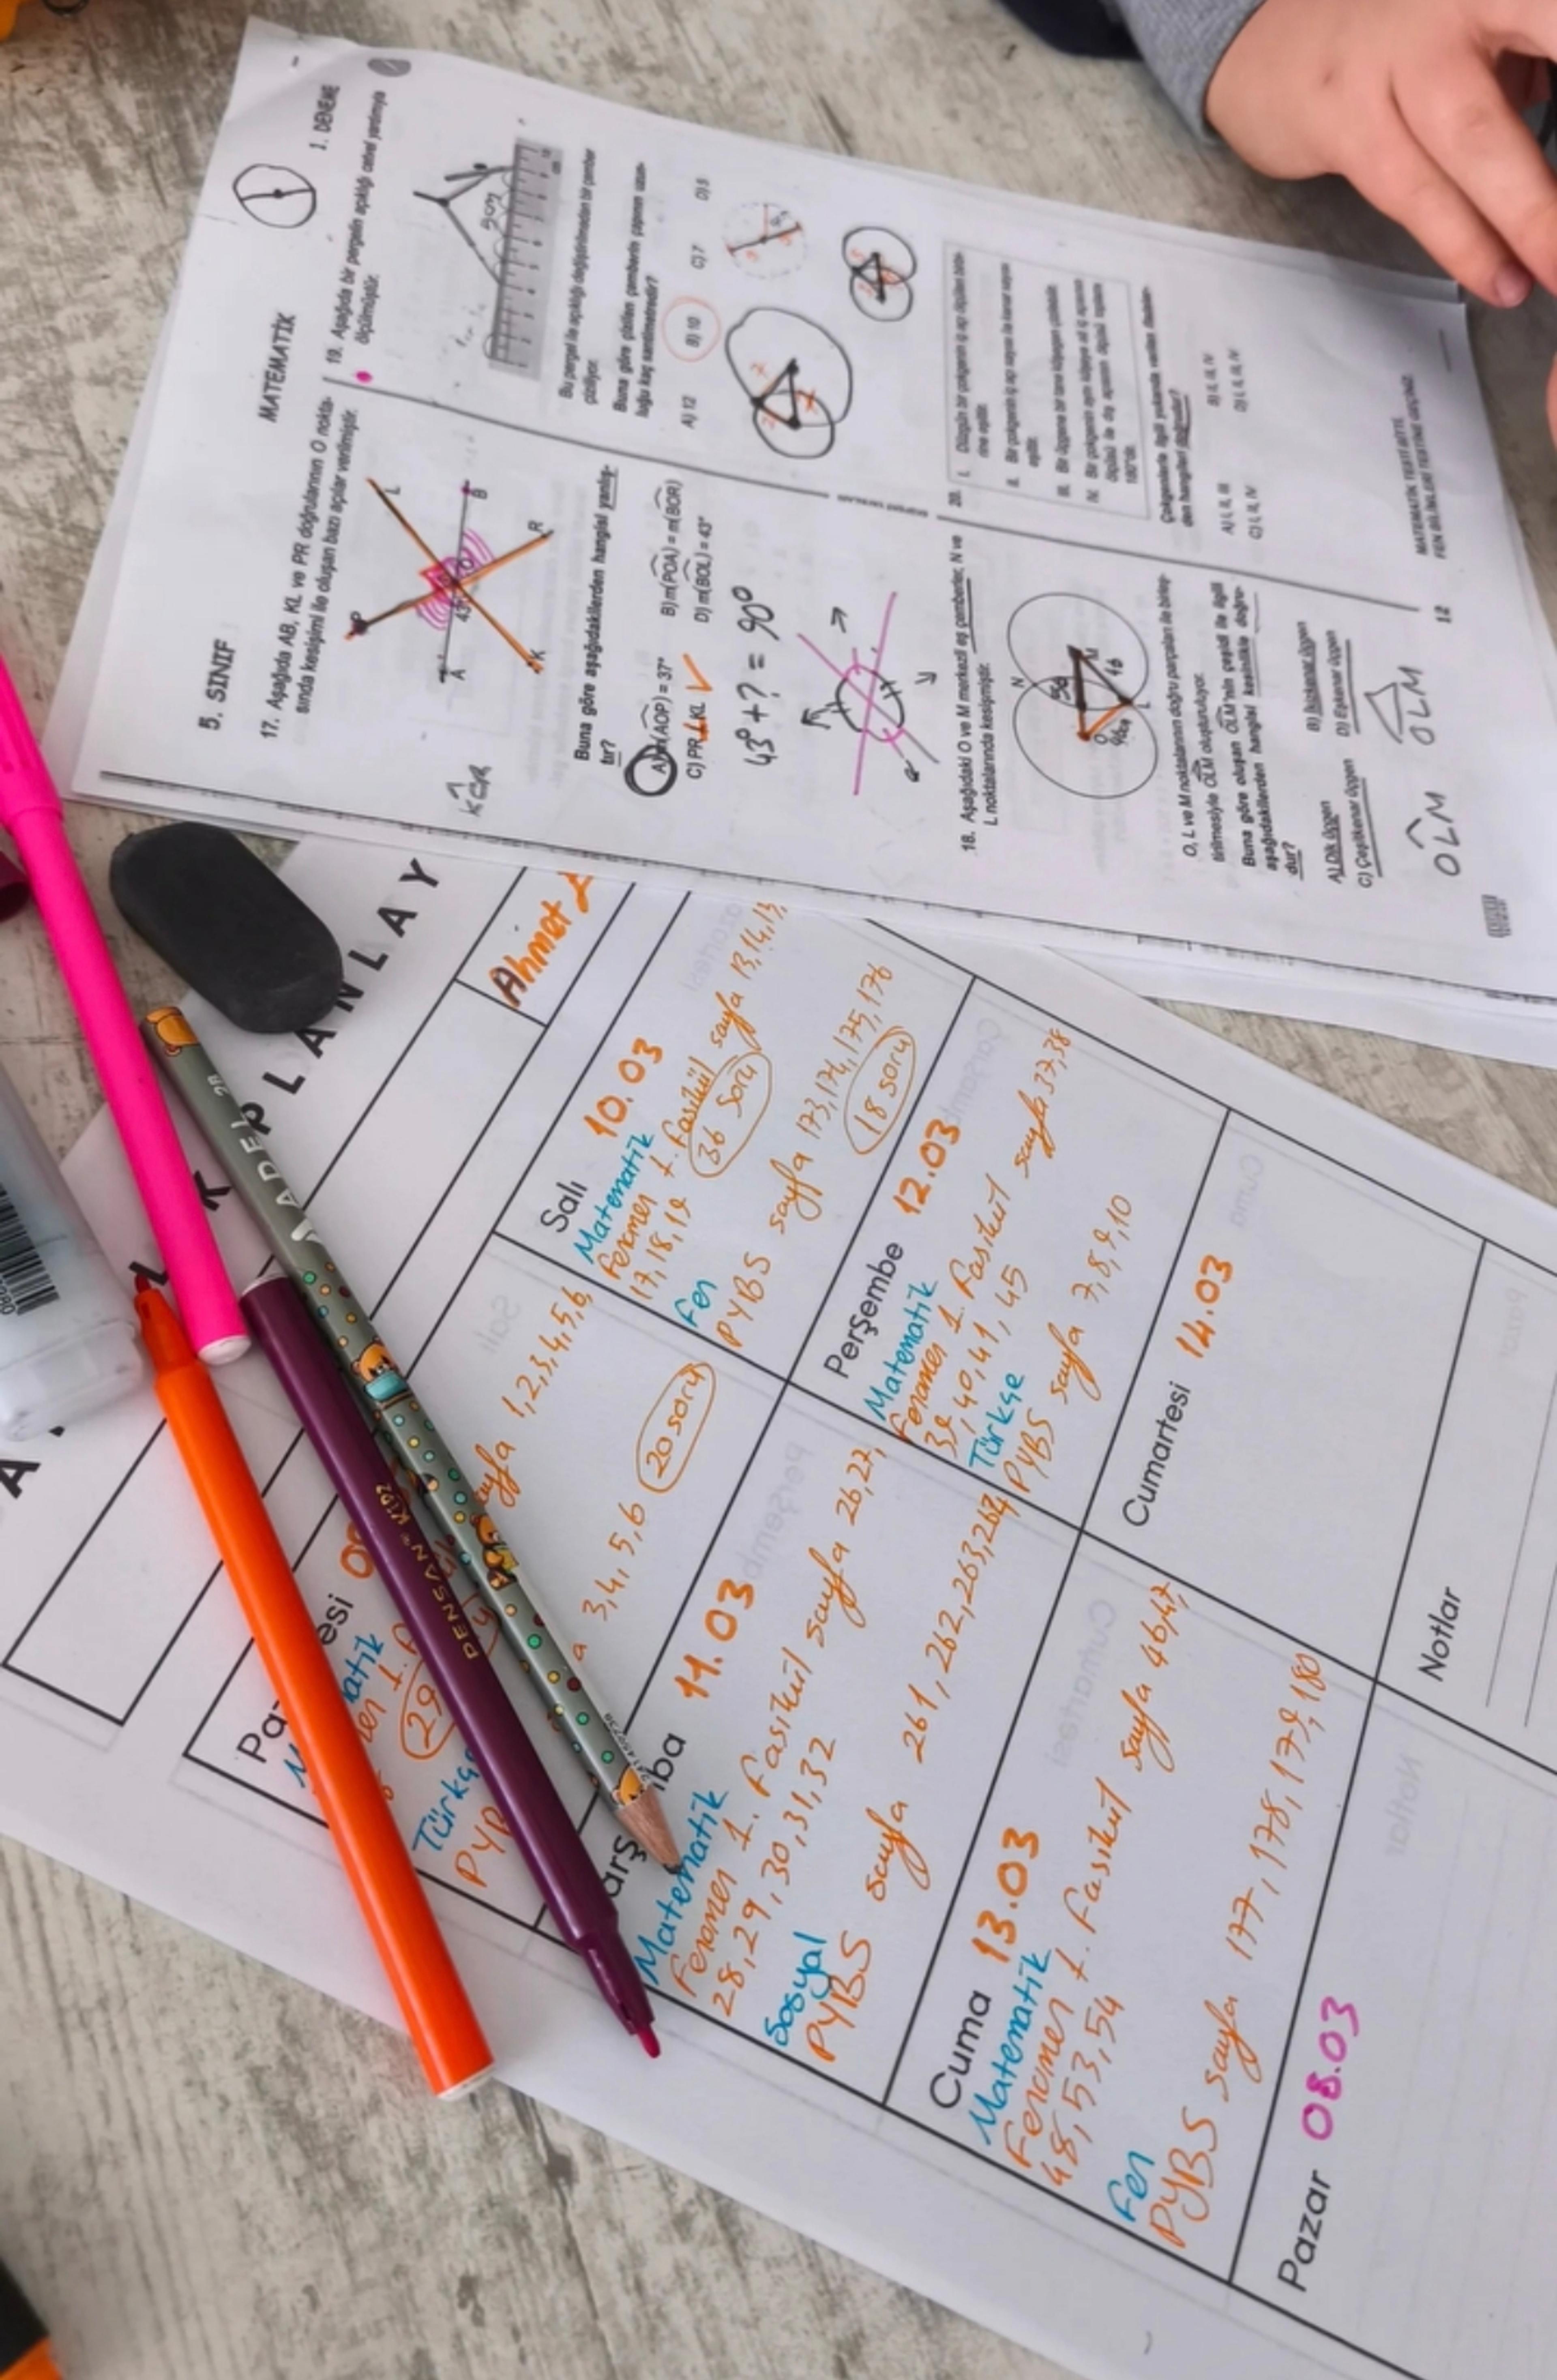 5. SINIF
MATEMATİK
1. DENEME
17. Aşağıda AB, KL ve PR doğrularının O nokta-
sında kesişimi ile oluşan bazı açılar verilmiştir.
P
L
A
43°
O
B
K
R
KOR
Buna göre aşağıdakilerden hangisi yanlış-
tır?
A) m(AOP) = 37°
B) m(POA) = m(BOR)
C) PR ⊥ KL
D) m(BOL) = 43°
43° + ? = 90°
18. Aşağıdaki O ve M merkezli eş çemberler, N ve
L noktalarında kesişmiştir.
N
O
M
L
O, L ve M noktalarının doğru parçaları ile birleş-
tirilmesiyle OLM oluşturuluyor.
Buna göre oluşan OLM'nin çeşidi ile ilgili
aşağıdakilerden hangisi kesinlikle doğru-
dur?
A) Dik üçgen
B) İkizkenar üçgen
C) Çeşitkenar üçgen
D) Eşkenar üçgen
OLM
OLM
12
19. Aşağıda bir pergelin açıklığı cetvel yardımıyla
ölçülmüştür.
5cm
Bu pergel ile açıklığı değiştirilmeden bir çember
çiziliyor.
Buna göre çizilen çemberin çapının uzun-
luğu kaç santimetredir?
A) 12
B) 10
C) 7
D) 5
20. I. Düzgün bir çokgenin iç açı ölçüleri birbi-
rine eşittir.
II. Bir çokgenin iç açı sayısı ile kenar sayısı
eşittir.
III. Bir üçgene bir tane köşegen çizilebilir.
IV. Bir çokgenin aynı köşeye ait iç açısının
ölçüsü ile dış açısının ölçüsü toplamı
180°dir.
Çokgenlerle ilgili yukarıda verilen ifadeler-
den hangileri doğrudur?
A) I, II, III
B) II, III, IV
C) I, II, IV
D) I, II, III, IV
MATEMATİK TESTİ BİTTİ.
FEN BİLİMLERİ TESTİNE GEÇİNİZ.
PLANLAY
Ahmet
esi
Matematik
29
Türkçe
sayfa 1,2,3,4,5,6,
3,4,5,6 20 soru
Salı 10.03
Matematik
Fenomen 1. Fasikül sayfa 13,14,15,
17,18,19 36 soru
Fen
PYBS sayfa 173,174,175,176
18 soru
11.03
Matematik
Fenomen 1. Fasikül sayfa 26,27,
28,29,30,31,32
Sosyal
PYBS sayfa 261,262,263,264
Perşembe 12.03
Matematik
Fenomen 1. Fasikül sayfa 37,38
39,40,41,45
Türkçe
PYBS sayfa 7,8,9,10
Cuma 13.03
Matematik
Fenomen 1. Fasikül sayfa 46,47,
48,53,54
Fen
PYBS sayfa 177,178,179,180
Cumartesi 14.03
Pazar 08.03
Notlar
ADEL
DENSAN KIDZ